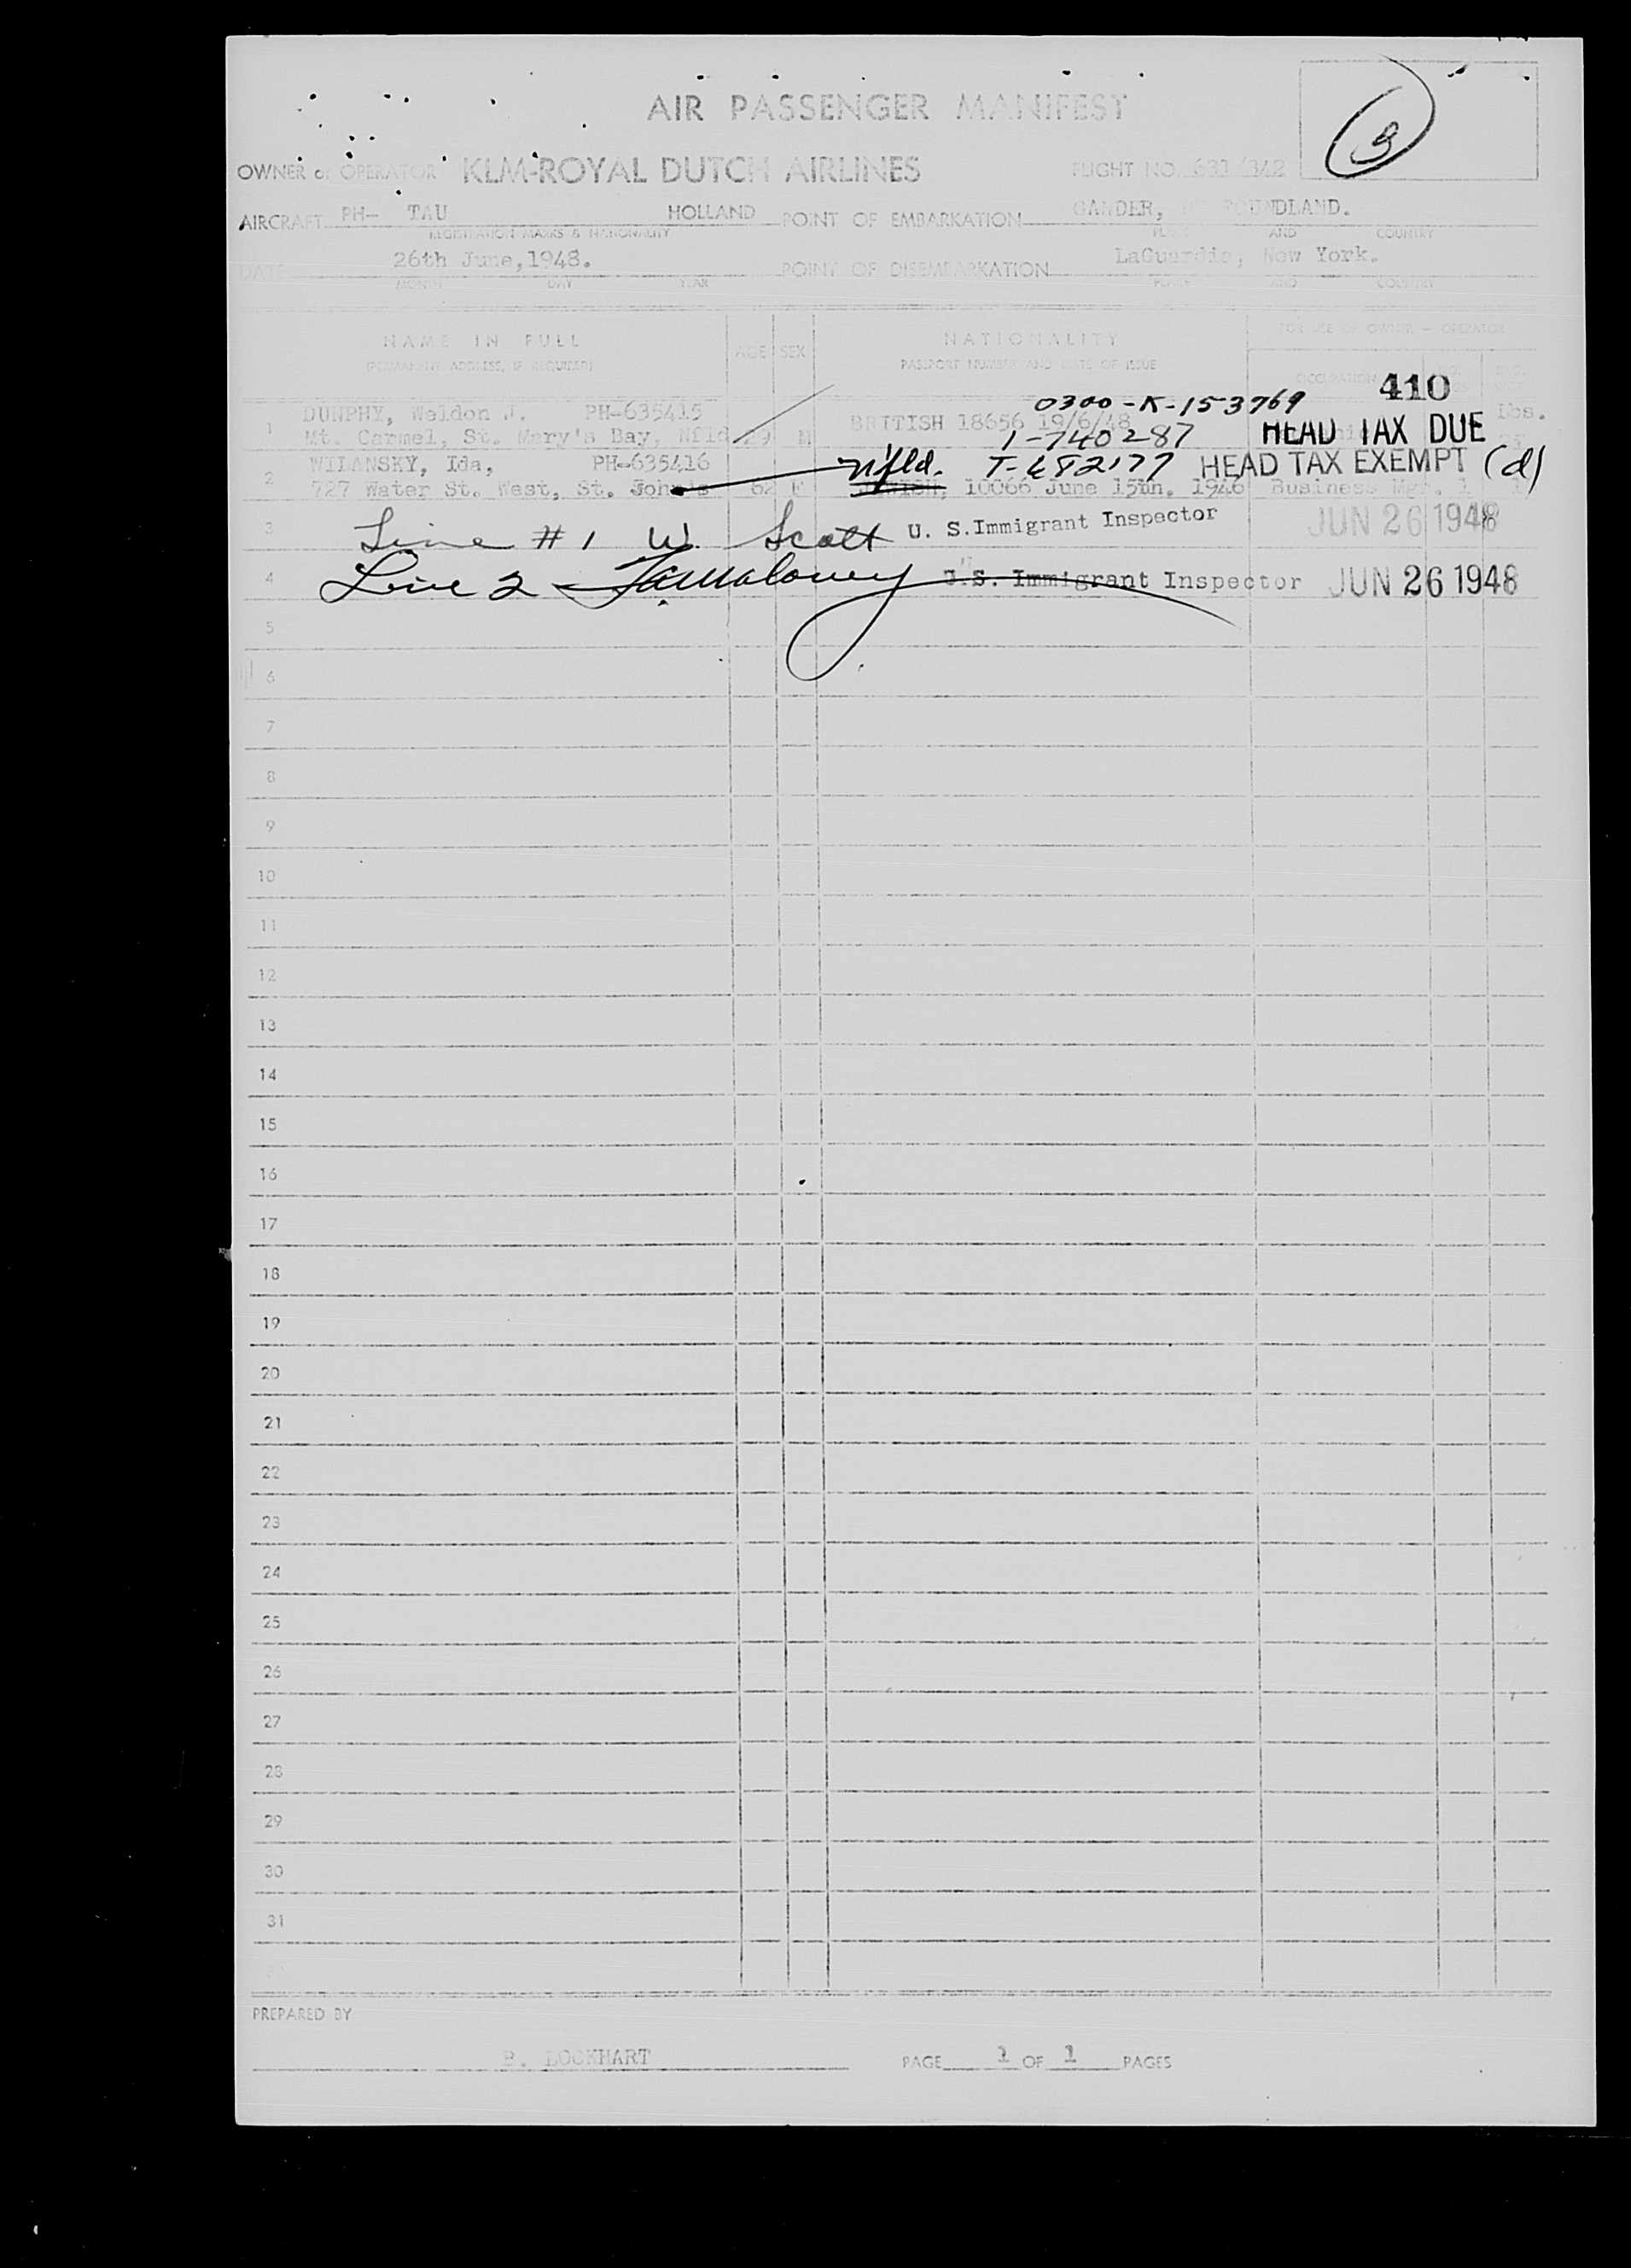 3
AIR PASSENGER MANIFEST
OWNER or OPERATOR KLM-ROYAL DUTCH AIRLINES FLIGHT NO. 631/342
AIRCRAFT PH- TAU HOLLAND POINT OF EMBARKATION GANDER, NEWFOUNDLAND.
REGISTRATION MARKS & NATIONALITY PLACE AND COUNTRY
DATE 26th June, 1948. POINT OF DISEMBARKATION LaGuardia, New York.
MONTH DAY YEAR PLACE AND COUNTRY
NAME IN FULL AGE SEX NATIONALITY FOR USE OF OWNER - OPERATOR
(PERMANENT ADDRESS, IF REQUIRED) PASSPORT NUMBER AND DATE OF ISSUE OCCUPATION
410
0300-K-153769
1 DUNPHY, Weldon J. PH-635415 BRITISH 18656 19/6/48 Lbs.
Mt. Carmel, St. Mary's Bay, Nfld 29 M 1-740287 HEAD TAX DUE
2 WILANSKY, Ida, PH-635416 Nfld. T-682177 HEAD TAX EXEMPT (d)
727 Water St. West, St. John's 62 F JEWISH, 10066 June 15th. 1946 Business Mgr. 1
3 Line #1 W. Scott U. S. Immigrant Inspector JUN 26 1948
4 Line 2 U.S. Immigrant Inspector JUN 26 1948
5
6
7
8
9
10
11
12
13
14
15
16
17
18
19
20
21
22
23
24
25
26
27
28
29
30
31
PREPARED BY
B. LOCKHART PAGE 1 OF 1 PAGES